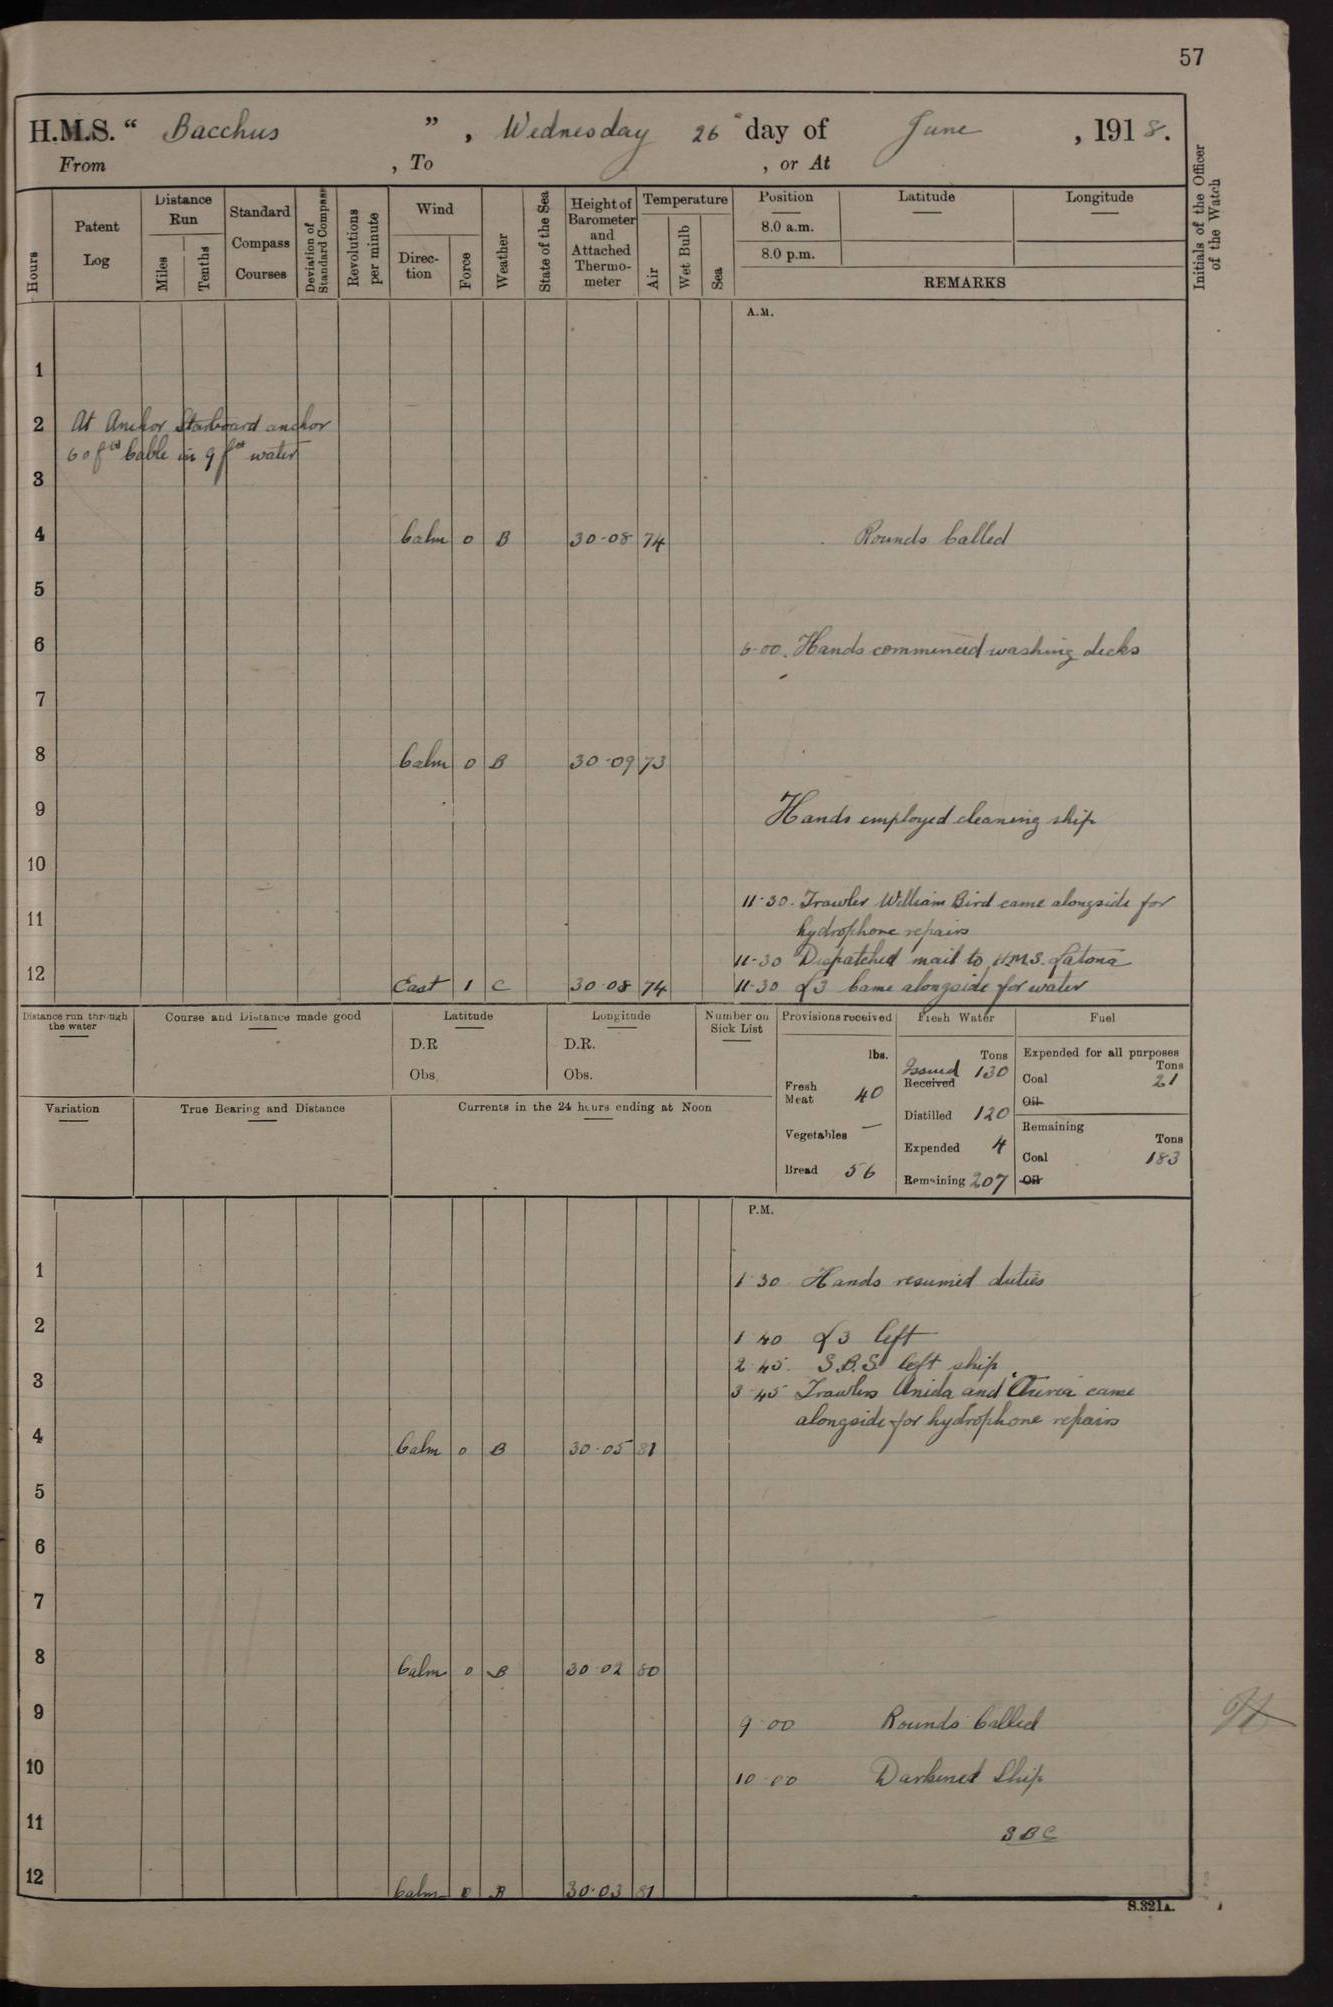 57
H.M.S. “ Bacchus ” , Wednesday 26 day of June , 1918.
From , To , or At
Hours
Patent Log
Distance Run
Miles
Tenths
Standard Compass Courses
Deviation of Standard Compass
Revolutions per minute
Wind
Direction
Force
Weather
State of the Sea
Height of Barometer and Attached Thermometer
Temperature
Air
Wet Bulb
Sea
Position
Latitude
Longitude
8.0 a.m.
8.0 p.m.
REMARKS
Initials of the Officer of the Watch
A.M.
1
2 At Anchor Starboard anchor
60 fms Cable in 9 fms water
3
4 Calm 0 B 30·08 74 Rounds Called
5
6 6·00. Hands commenced washing decks
7
8 Calm 0 B 30·09 73
9 Hands employed cleaning ship
10
11·30. Trawler William Bird came alongside for
11 hydrophone repairs
11-30 Dispatched mail to H.M.S. Latona
12 East 1 C 30·08 74 11-30 L3 Came alongside for water
Distance run through the water
Course and Distance made good
Latitude
D.R
Obs.
Longitude
D.R.
Obs.
Number on Sick List
Provisions received
lbs.
Fresh Meat 40
Vegetables —
Bread 56
Fresh Water
Tons
Issued 130
Received
Distilled 120
Expended 4
Remaining 207
Fuel
Expended for all purposes
Tons
Coal 21
Oil
Remaining
Tons
Coal 183
Oil
Variation
True Bearing and Distance
Currents in the 24 hours ending at Noon
P.M.
1 1 30 Hands resumed duties
2 1 40 L3 left
2 45. S.B.S. left ship
3 3 45 Trawlers Anida and came
alongside for hydrophone repairs
4 Calm 0 B 30·05 81
5
6
7
8 Calm 0 B 30 02 80
9 9 00 Rounds Called
10 10 00 Darkened Ship
11 SBC
12 Calm 0 B 30·03 81
S.321A.